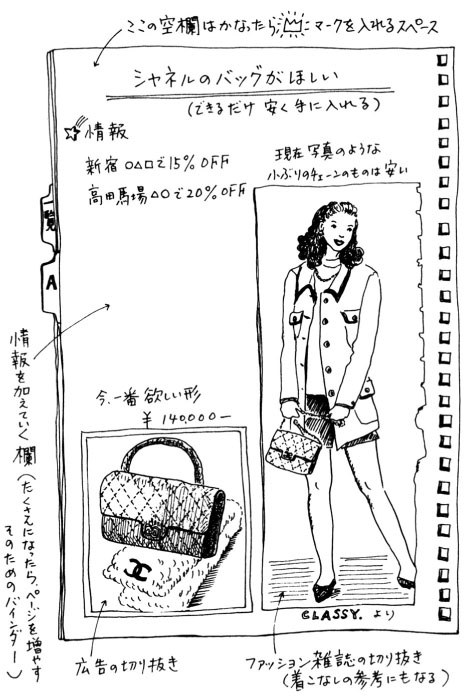 ここの空欄はかなったら マークを入れるスペース
シャネルのバッグがほしい
(できるだけ安く手に入れる)
情報
新宿○△□で15%OFF
高田馬場△○で20%OFF
現在写真のような
小ぶりのチェーンのものは安い
覧
A
情報を加えていく欄(たくさんになったら、ページを増やす
そのためのバインダー)
今、一番欲しい形
¥140,000−
広告の切り抜き
CLASSY. より
ファッション雑誌の切り抜き
(着こなしの参考にもなる)